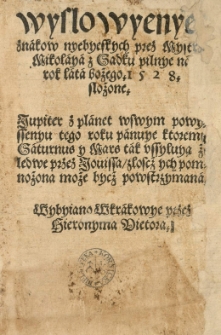 wyslowyenye
znakow nyebyeskych przez Mystr
Mikolaya z Sadku pilnye n
rok lata bożego, 1528,
slożone,
Jupiter z planet wswym powy,
ssenyu tego roku panuye ktorem
Saturnus y Mars tak vssyluya ż
ledwe przez Jouissa/ zlosć ych pom
nożona może bycż powstrzymana
Wybyiano Wkrakowye przez
Hieronyma Vietora,